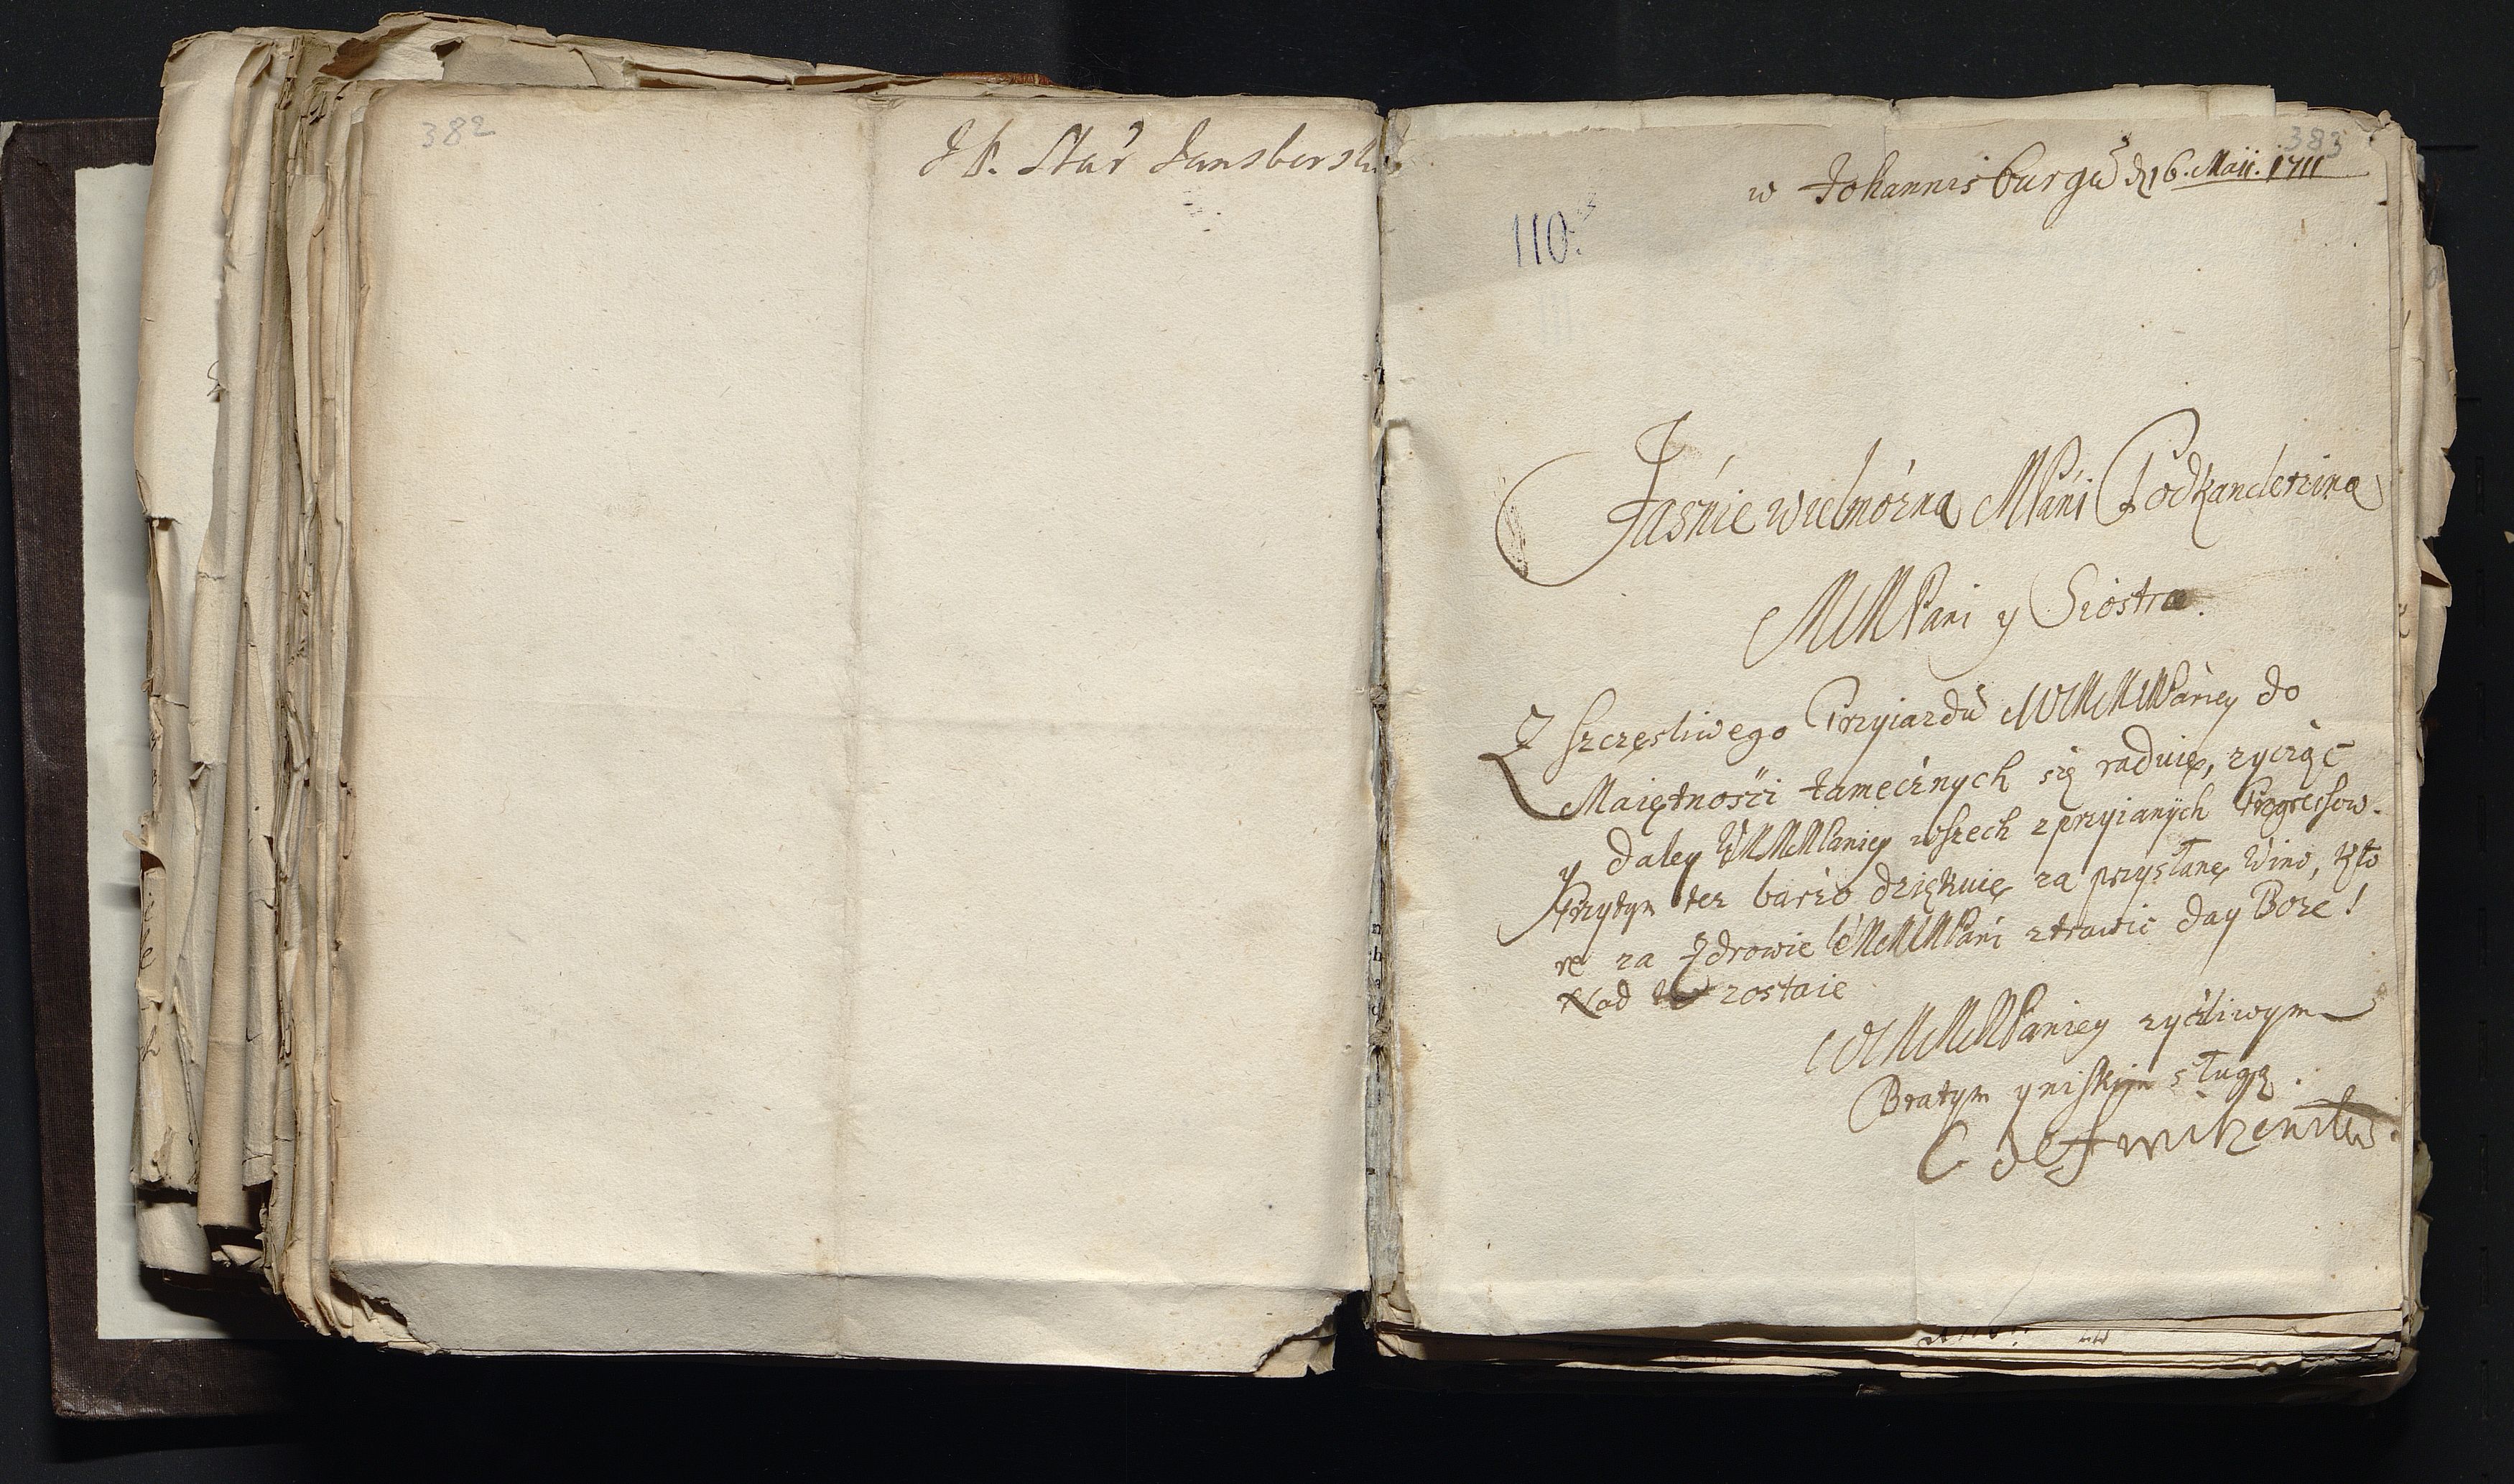 382
JP. Star Jansborski
383
w Johannisburgu d 16. Maii. 1711
110.
Jaśnie wielmózna MPani Podkanclerzina
MMPani y Siostra.
Z szczęsliwego Przyiazdu WMMMPaniey do
Maiętnosci tamecznych się raduię, zycząc
y daley WMMMPaniey wszech zprzyianych Progressow.
Przytym tez barzo dziękuię za przysłane Wino, kto
re za Zdrowie MMMPani ztrawic day Boze!
Nad to zostaie
WMMMPaniey zyczliwym
Bratym y niskim sługą.